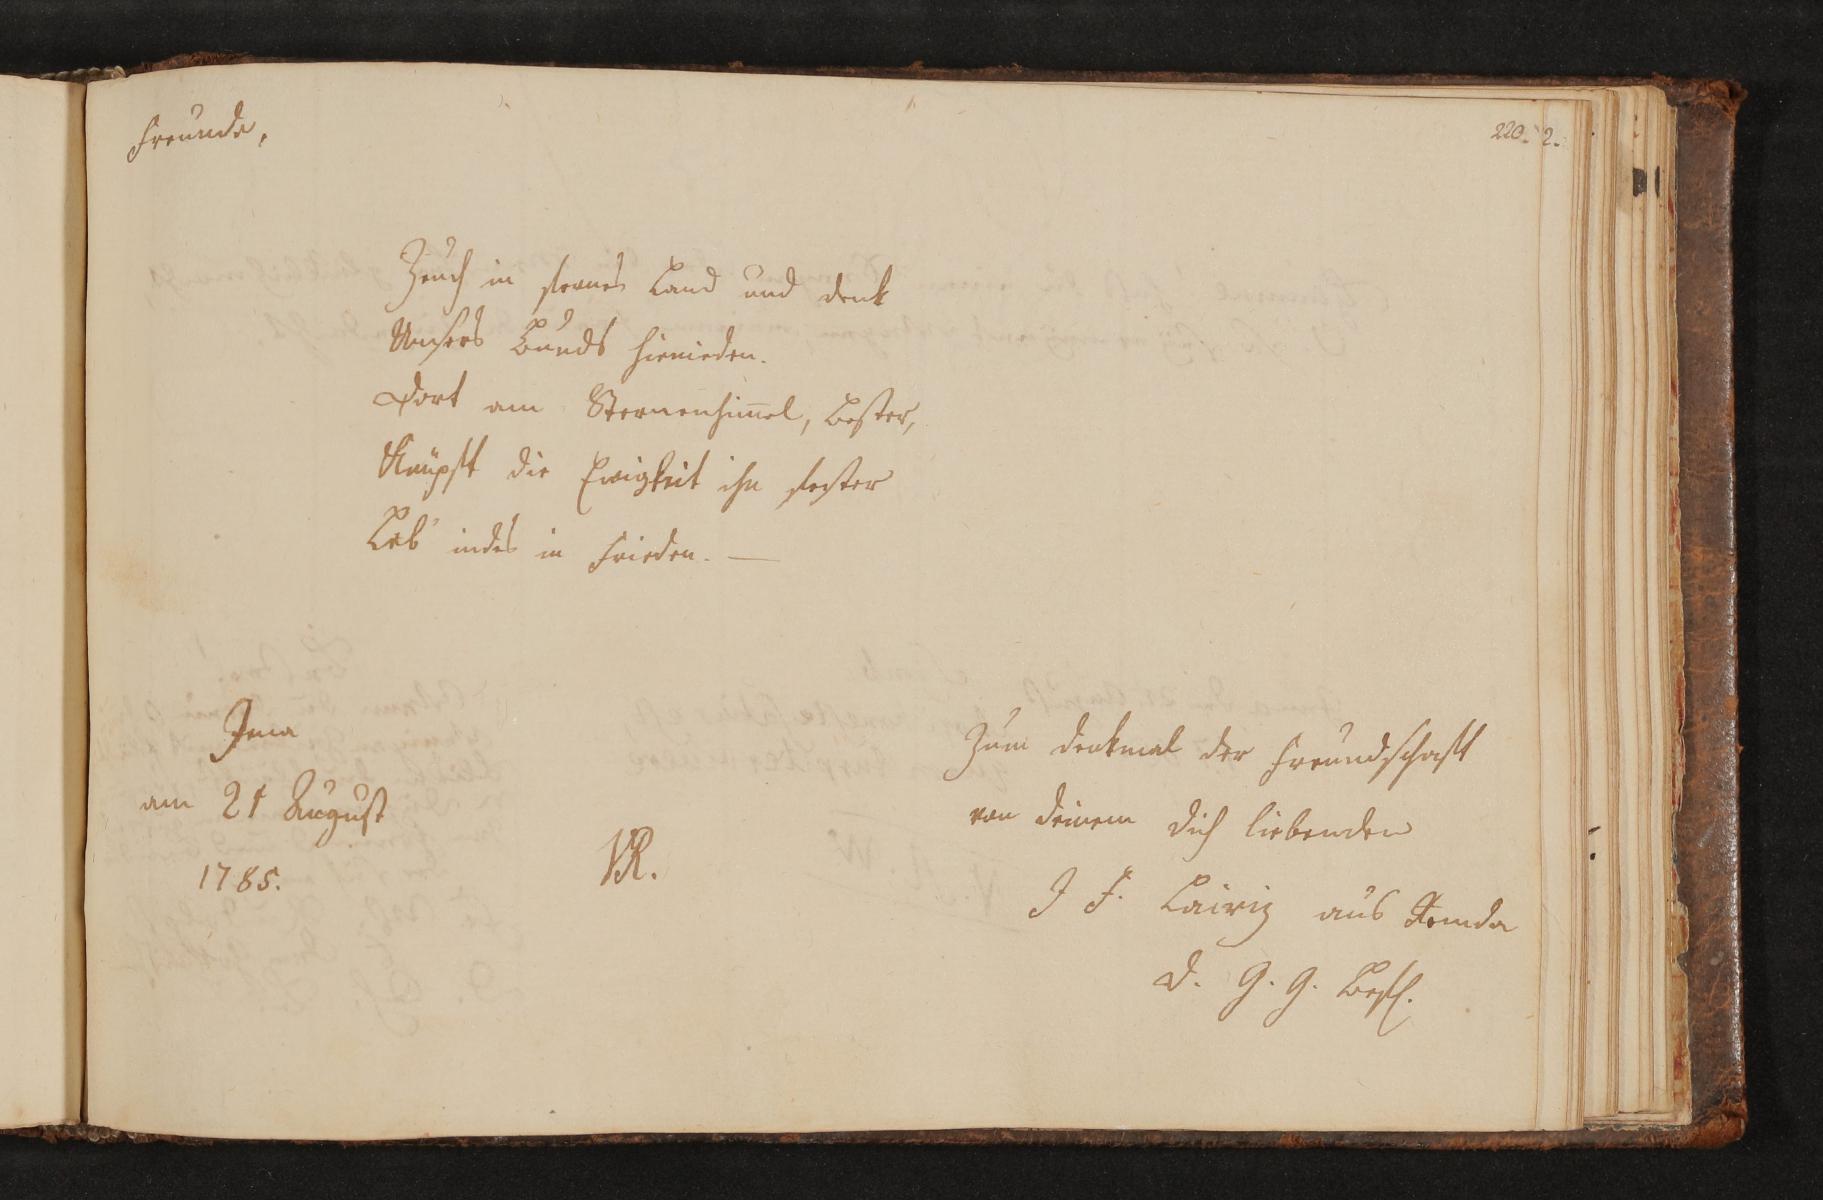 Freunde,
220. 2.
Zeuch in fernes Land und denk
Unsers Bunds hienieden.
Dort am Sternenhim̄el, Bester,
Knüpft die Ewigkeit ihn fester
Leb' indes in Frieden. —
Jena
am 21 August
1785.
VR.
Zum Denkmal der Freundschaft
von deinem dich liebenden
J F. Lairiz aus Remda
d. G. G. Befl.